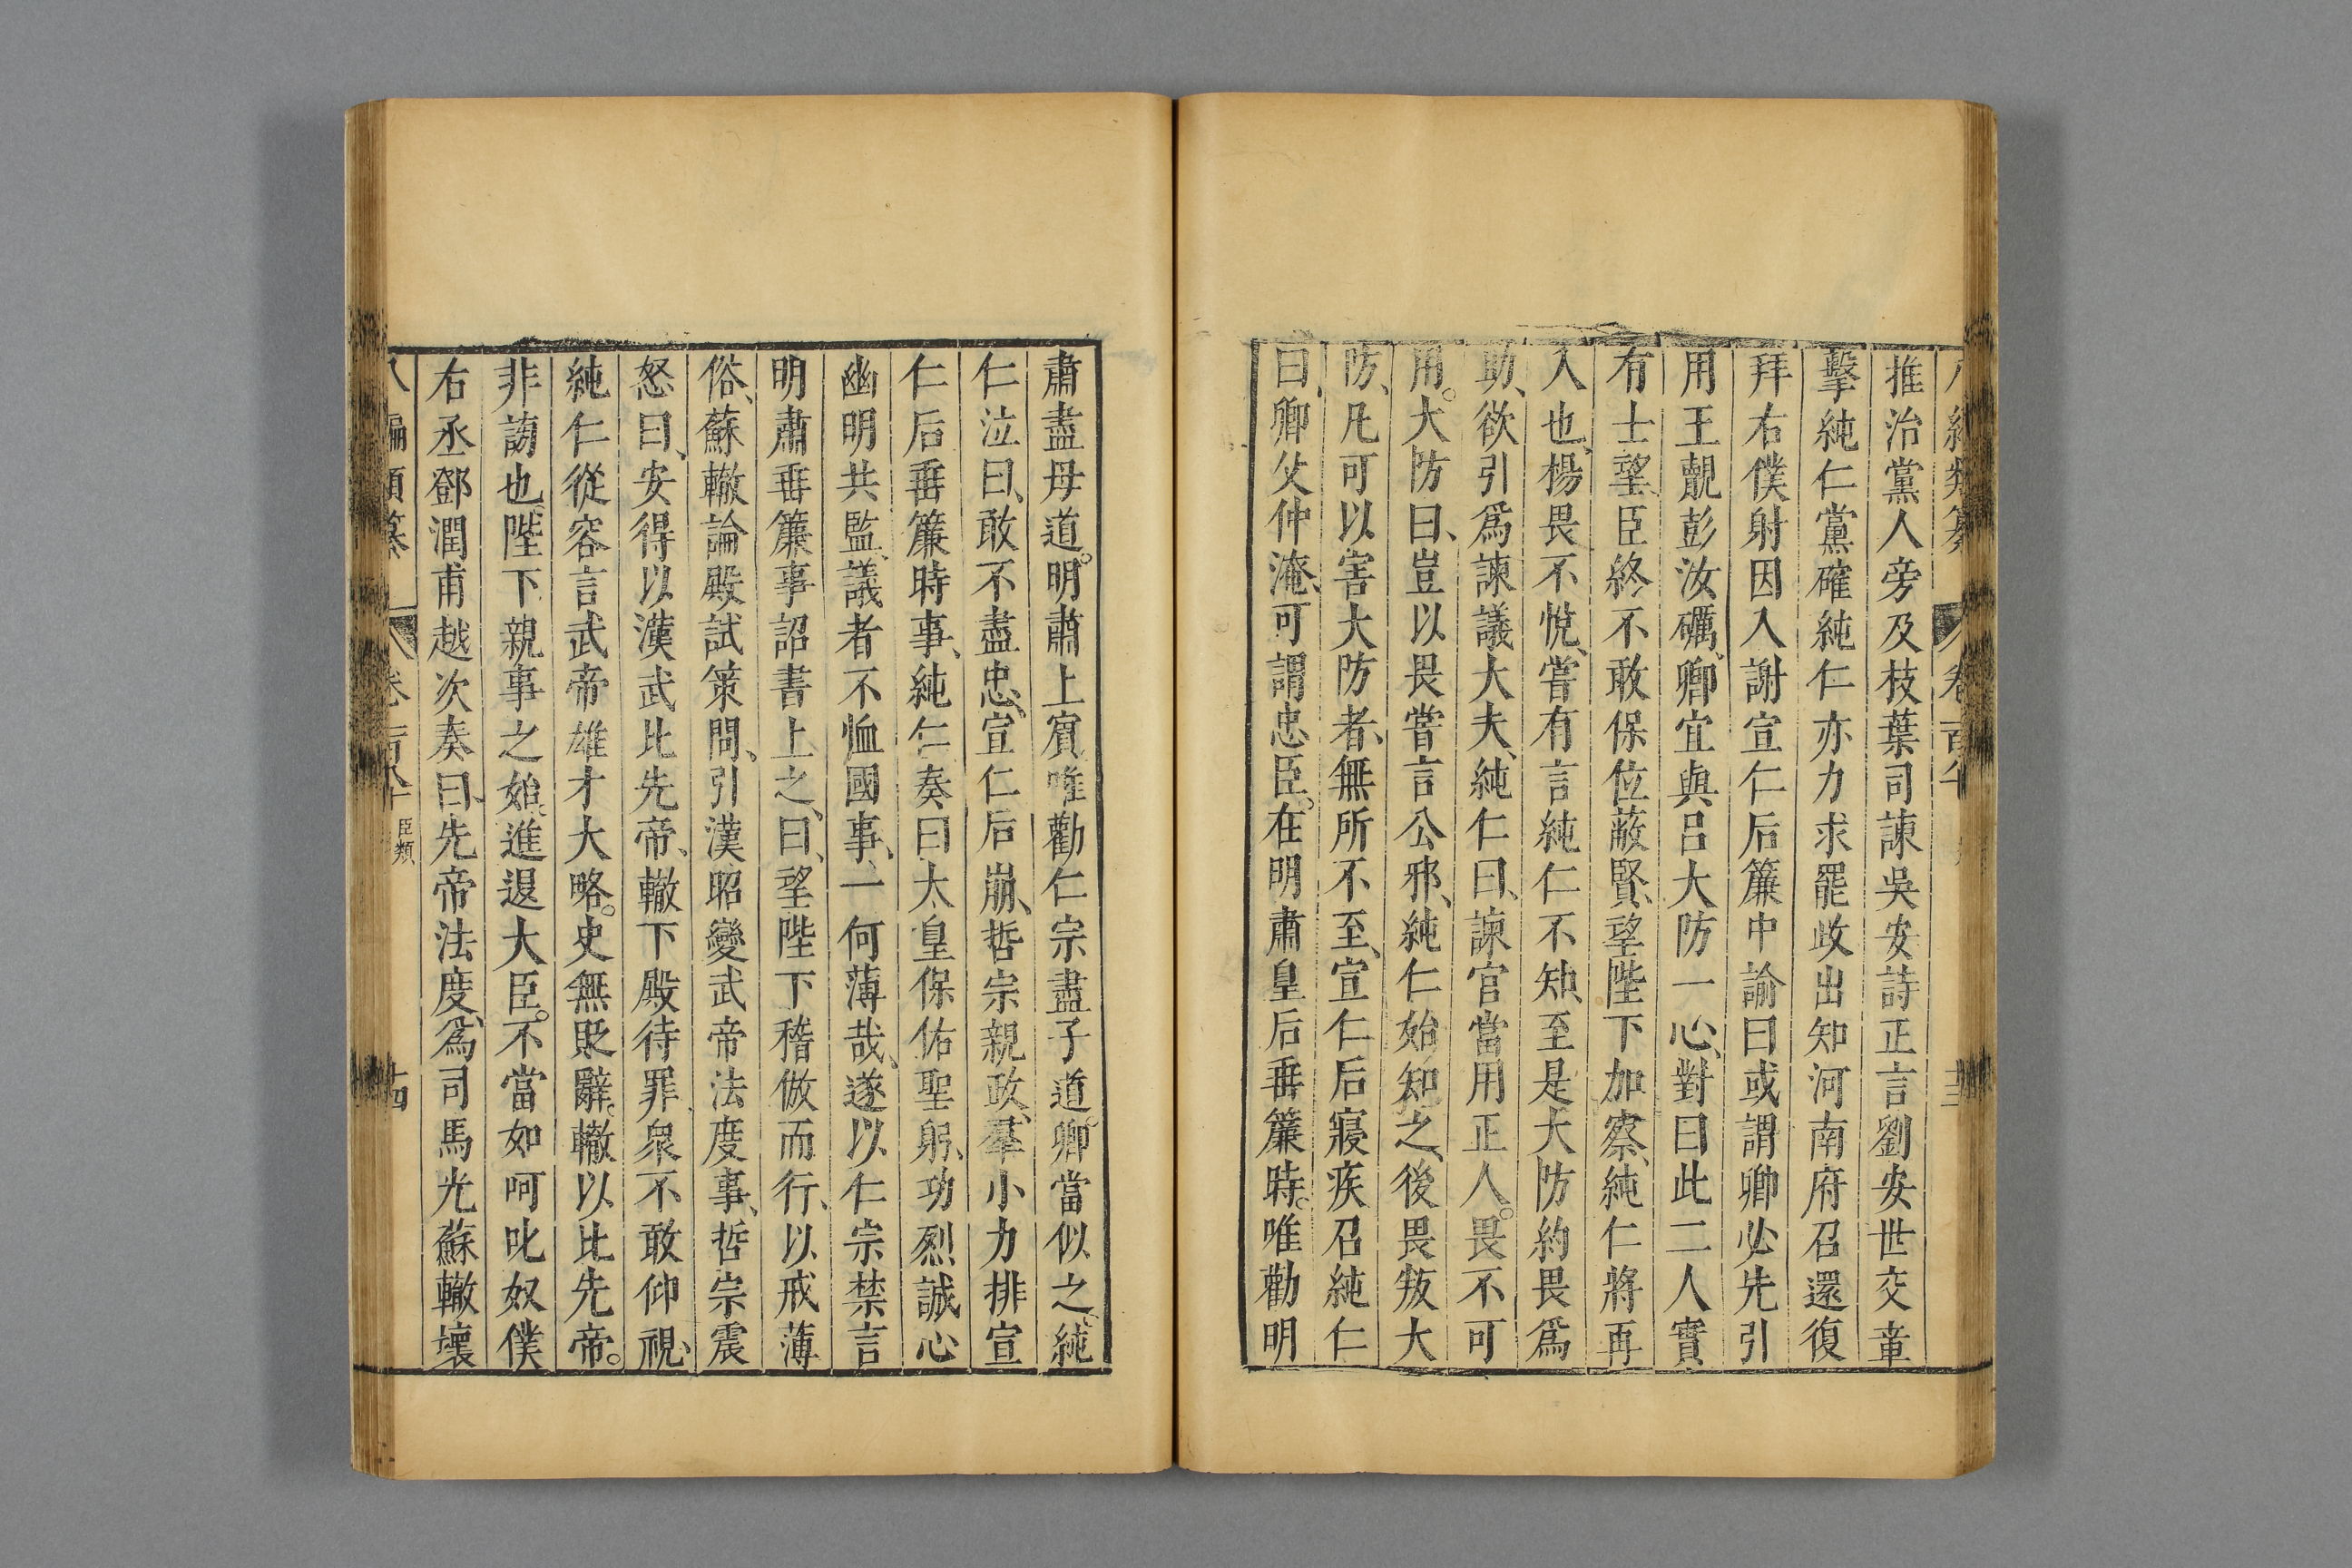 推治黨人旁及枝葉司諫吳安詩正言劉安世交章
擊純仁黨確純仁亦力求罷政出知河南府召還復
拜右僕射因入謝宣仁后簾中諭曰或謂卿必先引
用王覿彭汝礪、卿宜與呂大防一心、對曰此二人實
有士望、臣終不敢保位蔽賢、望陛下加察、純仁將再
入也、楊畏不悅、嘗有言純仁不知、至是大防約畏爲
助、欲引爲諫議大夫、純仁曰、諫官當用正人。畏不可
用。大防曰、豈以畏嘗言公邪、純仁始知之、後畏叛大
防、凡可以害大防者、無所不至、宣仁后寢疾召純仁
曰、卿父仲淹、可謂忠臣。在明肅皇后垂簾時。唯勸明
肅盡母道。明肅上賓唯勸仁宗盡子道。卿當似之、純
仁泣曰、敢不盡忠、宣仁后崩、哲宗親政、羣小力排宣
仁后垂簾時事、純仁奏曰太皇保佑聖躬、功烈誠心
幽明共監、議者不恤國事、一何薄哉、遂以仁宗禁言
明肅垂簾事詔書上之、曰、望陛下稽倣而行、以戒薄
俗、蘇轍論殿試策問、引漢昭變武帝法度事、哲宗震
怒曰、安得以漢武比先帝、轍下殿待罪衆不敢仰視、
純仁從容言武帝雄才大略。史無貶辭。轍以比先帝。
非謗也。陛下親事之始、進退大臣。不當如呵叱奴僕
右丞鄧潤甫越次奏曰、先帝法度、爲司馬光蘇轍壞
八編類纂 卷一百八十 臣類 十四